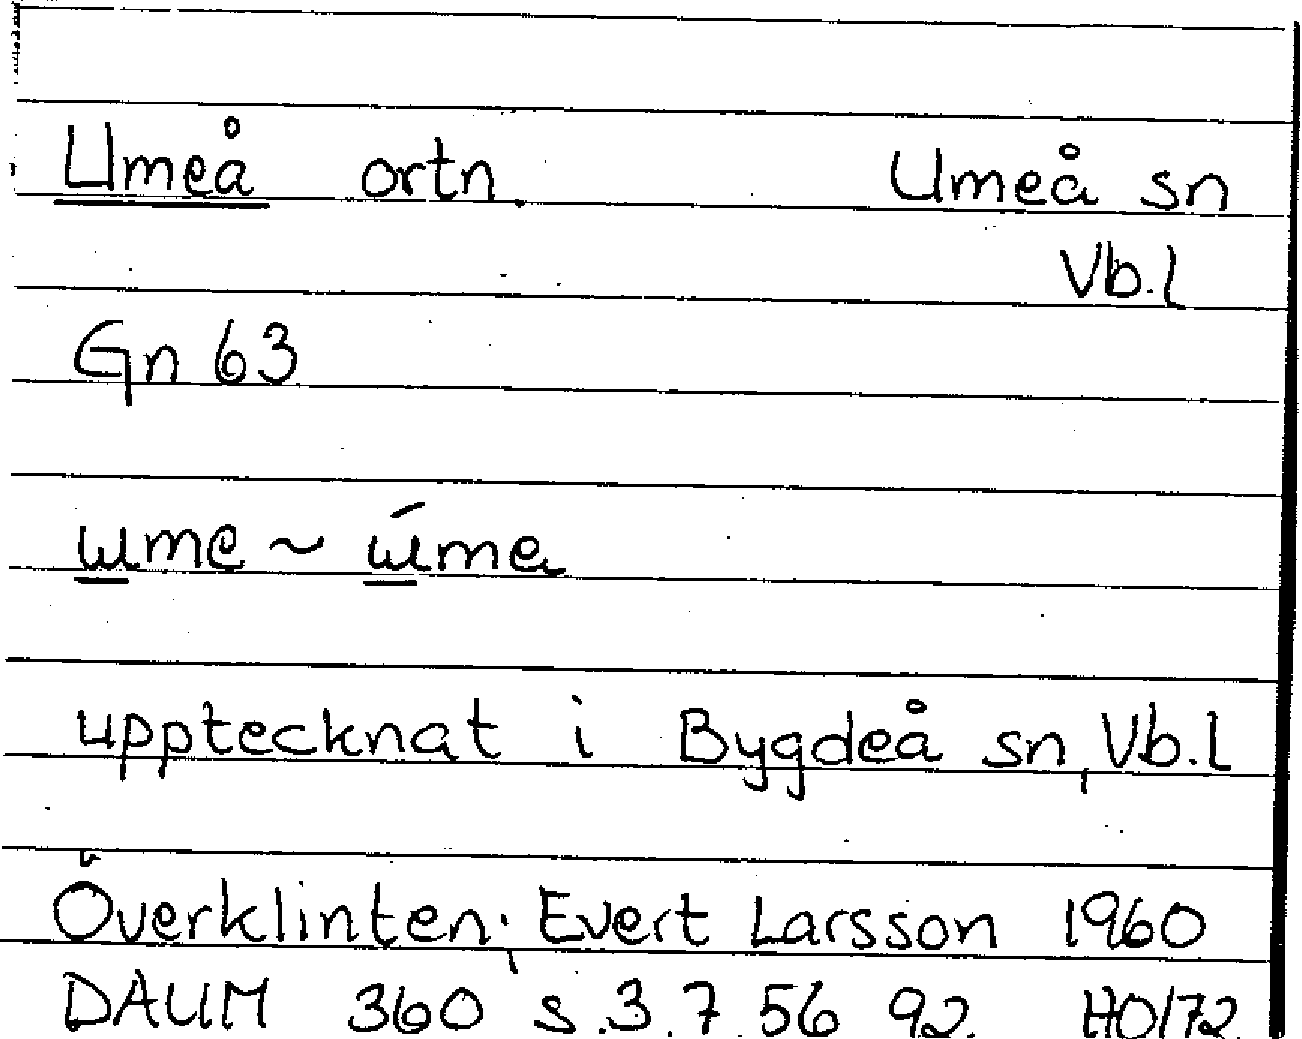 Umeå ortn. Umeå sn
Vb.l
Gn 63
ɯme ~ ɯ́me
upptecknat i Bygdeå sn, Vb.l
Överklinten; Evert Larsson 1960
DAUM 360 s.3.7.56 92. HO/72